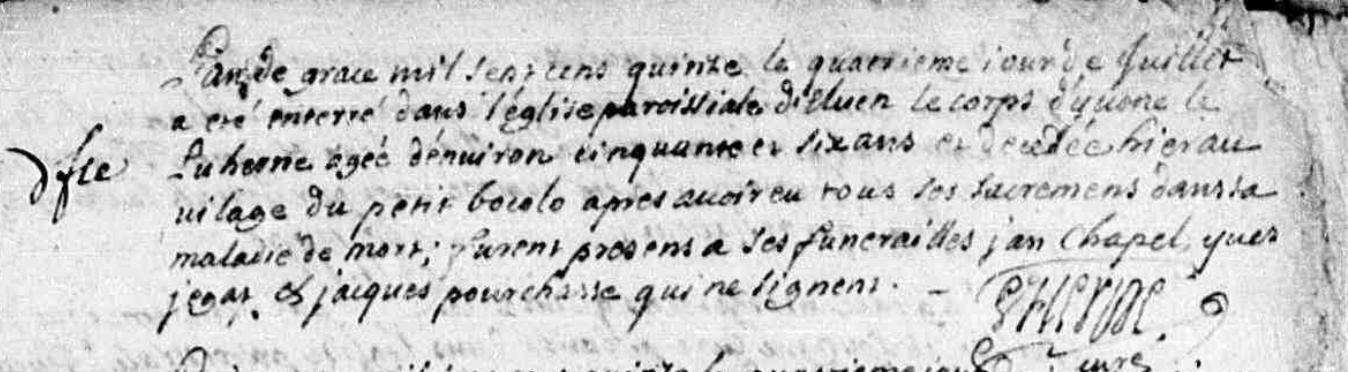 L'an de grace mil sept cens quinze le quatrieme jour de Juillet
a eté enterré dans l'église paroissiale d'Eluen le corps d'yuone le
dfte
Luherne agée d'enuiron cinquante et six ans et decedée hier au
uilage du petit bocolo apres auoir eu tous ses sacremens dans sa
maladie de mort; furent presens a ses funerailles jan Chapel, yues
jegat, & jacques pourchasse qui ne signent. –
curé